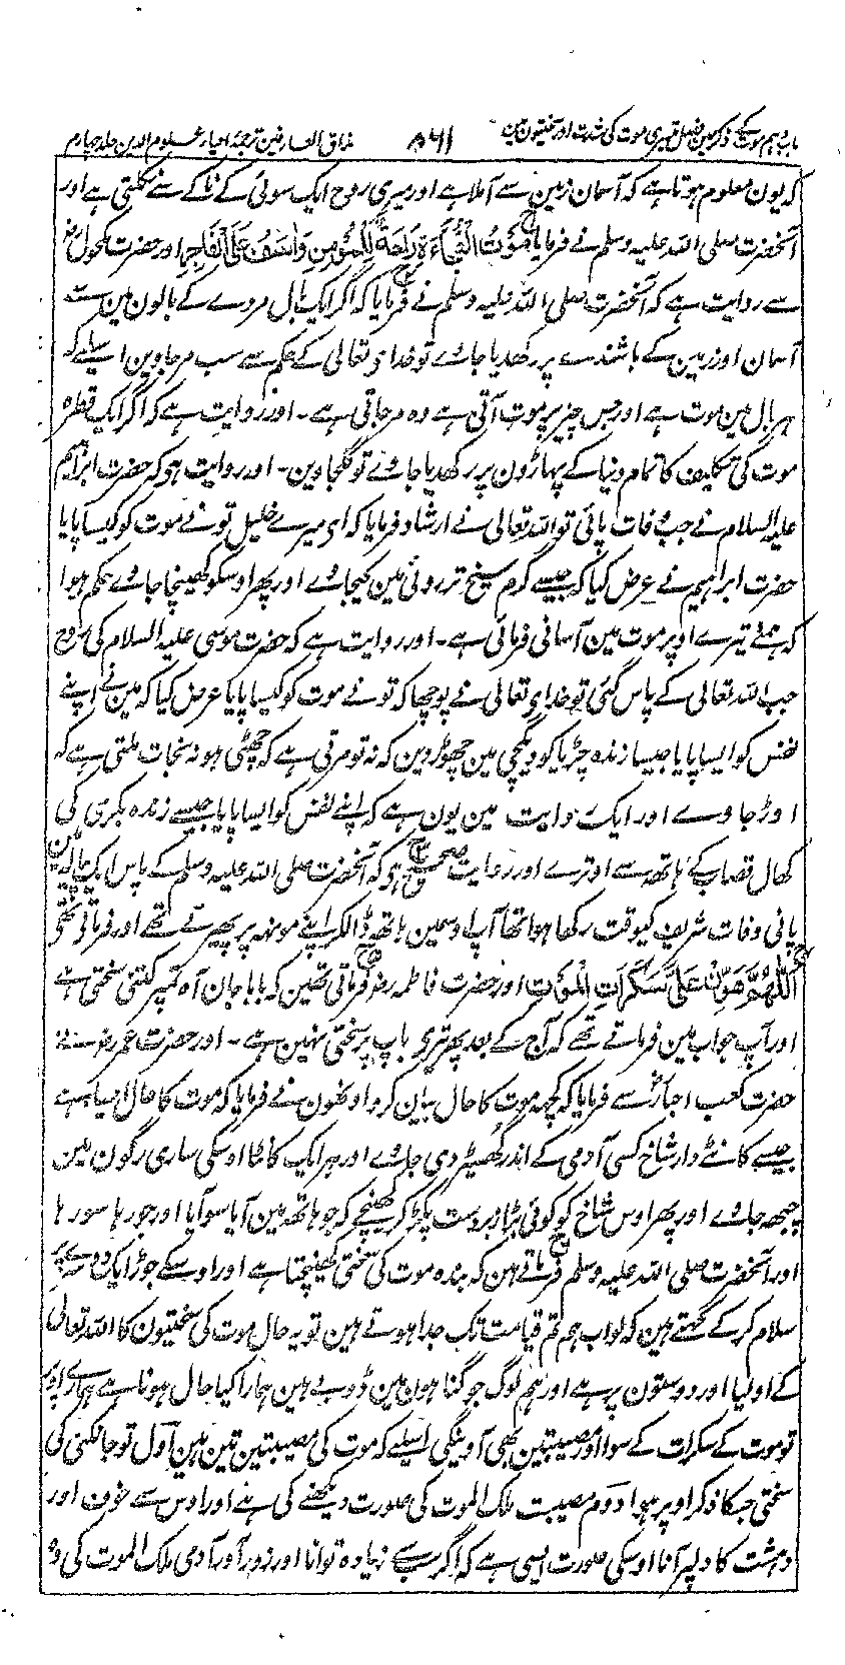 باب دہم موت کے ذکر مین فصل تیسری موت کی شدت اور سختیون مین ۵۶۱ مذاق العارفین ترجمۂ احیاء علوم الدین جلد چہارم
کہ یون معلوم ہوتا ہے کہ آسمان زمین سے آملا ہے اور میری روح ایک سوئی کے ناکے سے نکلتی ہے اور
آنحضرت صلی اللہ علیہ وسلم نے فرمایا مَوْتُ الْفُجَاءَةِ رَاحَةٌ لِلْمُؤْمِنِ وَاَسَفٌ عَلَى الْفَاجِرِ اور حضرت مکحول رض
سے روایت ہے کہ آنحضرت صلی اللہ علیہ وسلم نے فرمایا کہ اگر ایک بال مردے کے بالون مین سے
آسمان اور زمین کے باشندے پر رکھدیا جاوے تو خدای تعالی کے حکم سے سب مرجاوین اسلیے کہ
ہر بال مین موت ہے اور جس چیز پر موت آتی ہے وہ مرجاتی ہے۔ اور روایت ہے کہ اگر ایک قطرہ
موت کی تکلیف کا تمام دنیا کے پہاڑون پر رکھدیا جاوے تو گلجاوین۔ اور روایت ہی کہ حضرت ابراہیم
علیہ السلام نے جب وفات پائی تو اللہ تعالی نے ارشاد فرمایا کہ ای میرے خلیل تونے موت کو کیسا پایا
حضرت ابراہیم نے عرض کیا کہ جیسے گرم سیخ تر روئی مین کیجاوے اور پھر اوسکو کھینچا جاوے حکم ہوا
کہ ہمنے تیرے اوپر موت مین آسانی فرمائی ہے۔ اور روایت ہے کہ حضرت موسی علیہ السلام کی روح
جب اللہ تعالی کے پاس گئی تو خدای تعالی نے پوچھا کہ تونے موت کو کیسا پایا عرض کیا کہ مین نے اپنے
نفس کو ایسا پایا جیسا زندہ چڑیا کو دیگچی مین چھوڑ دین کہ نہ تو مرتی ہے کہ چھٹی ہو نہ نجات ملتی ہے کہ
اوڑ جاوے اور ایک روایت مین یون ہے کہ اپنے نفس کو ایسا پایا جیسے زندہ بکری کی
کھال قصاب کے ہاتھ سے اوترے اور روایت صحیح ہی کہ آنحضرت صلی اللہ علیہ وسلم کے پاس ایک پیالہ مین
پانی وفات شریف کیوقت رکھا ہوا تھا آپ اوسمین ہاتھ ڈالکر اپنے مونہہ پر پھیرتے تھے اور فرماتے تھے
اَللّٰهُمَّ هَوِّنْ عَلَيَّ سَكَرَاتِ الْمَوْتِ اور حضرت فاطمہ رض فرماتی تھین کہ بابا جان آہ تمپر کتنی سختی ہے
اور آپ جواب مین فرماتے تھے کہ آج کے بعد پھر تیری باپ پر سختی نہین ہے۔ اور حضرت عمر رض نے
حضرت کعب احبار سے فرمایا کہ کچھ موت کا حال بیان کرو اونھون نے فرمایا کہ موت کا حال ایسا ہے
جیسے کانٹے دار شاخ کسی آدمی کے اندر گھسیڑ دی جاوے اور ہر ایک کانٹا اوسکی ساری رگون مین
چبھ جاوے اور پھر اوس شاخ کو کوئی بڑا زبردست پکڑ کر کھینچے کہ جو ہاتھ مین آیا سو آیا اور جو رہا سو رہا
اور آنحضرت صلی اللہ علیہ وسلم فرماتے ہین کہ بندہ موت کی سختی کھینچتا ہے اور اوسکے جوڑ ایک دوسرے پر
سلام کر کے کہتے ہین کہ لو اب ہم تم قیامت تک جدا ہوتے ہین تو یہ حال موت کی سختیون کا اللہ تعالی
کے اولیا اور دوستون پر ہے اور ہم لوگ جو گناہون مین ڈوبے ہین ہمارا کیا حال ہونا ہے ہمارے اوپر
تو موت کے سکرات کے سوا اور مصیبتین بھی آوینگی اسلیے کہ موت کی مصیبتین تین ہین اول تو جانکنی کی
سختی جسکا ذکر اوپر ہوا دوم مصیبت ملک الموت کی صورت دیکھنے کی ہے اور اوس سے خوف اور
دہشت کا دلپر آنا اوسکی صورت ایسی ہے کہ اگر سب سے زیادہ توانا اور زور آور آدمی ملک الموت کی وہ